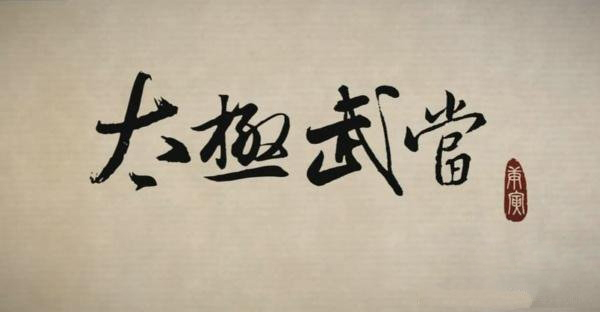 太極武當
庚寅